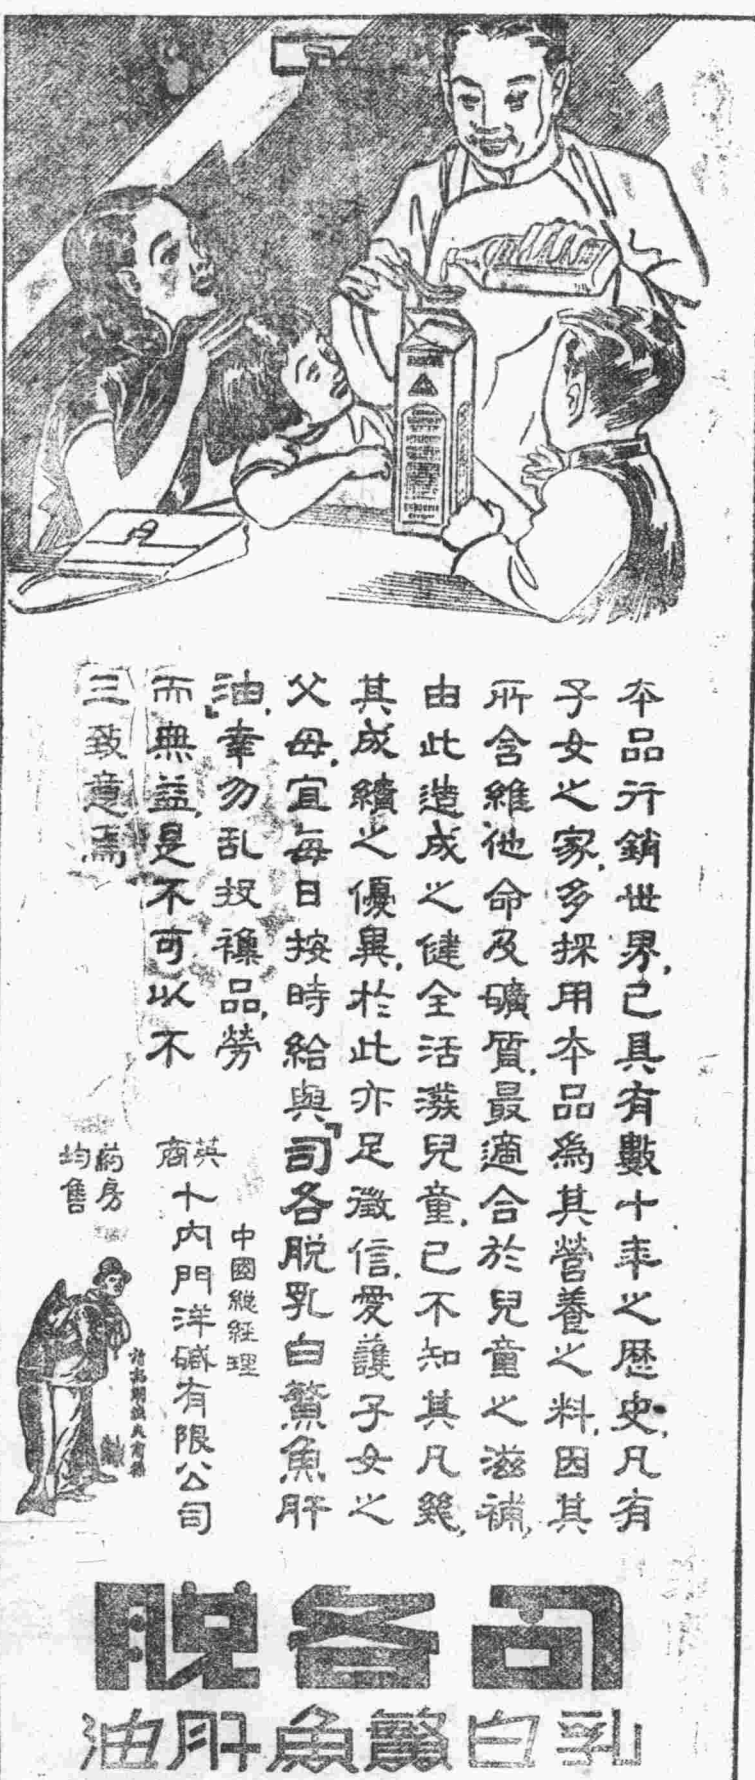 本品行銷世界,已具有數十年之歷史,凡有
子女之家,多採用本品為其營養之料,因其
所含維他命及礦質,最適合於兒童之滋補,
由此造成之健全活潑兒童,已不知其凡幾,
其成績之優異,於此亦足徵信,愛護子女之
父母,宜每日按時給與「司各脫乳白鰵魚肝
油」,幸勿乱投藥品,勞
而無益,是不可以不
三致意焉
中國總經理
英商卜內門洋碱有限公司
葯房均售
司各脫
乳白鰵魚肝油